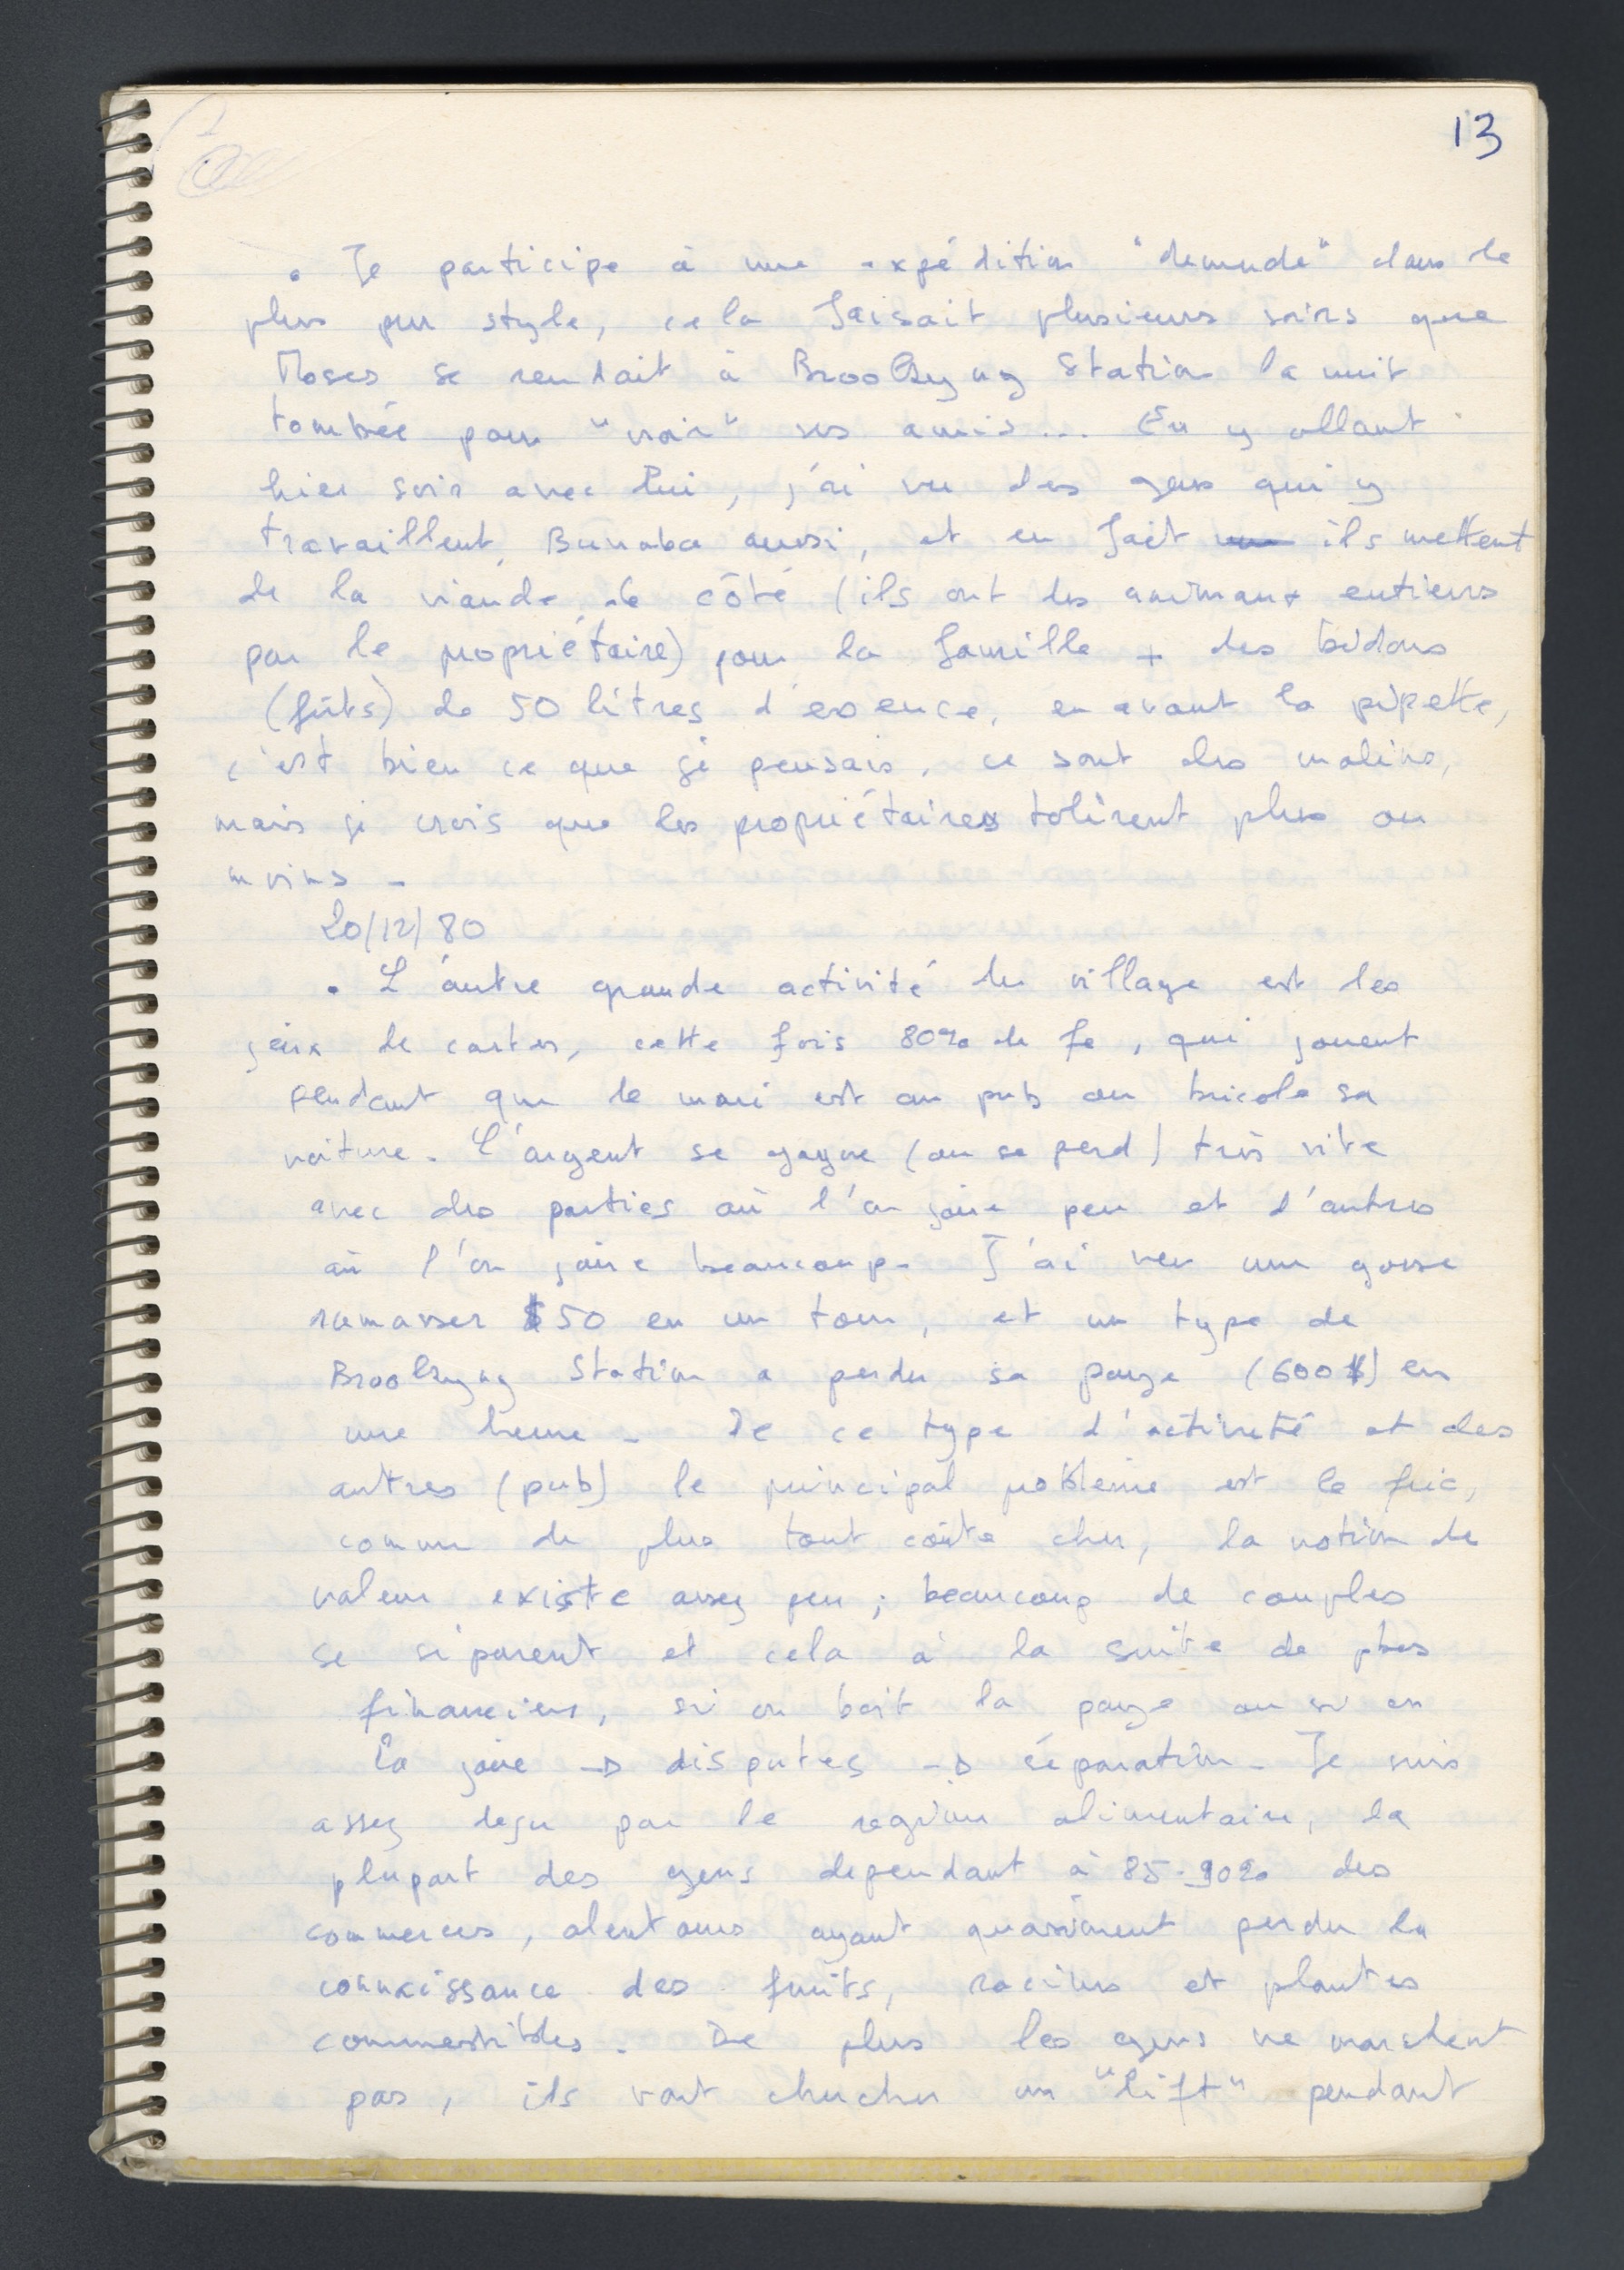 13
. Je participe à une expédition "démmerde" dans le
plus pur style, cela faisait plusieurs soirs que
Moses se rendait à Brooking Station la nuit
tombée pour "voir" ses amis... En y allant
hier soir avec lui, j'ai vu des gens qui y
travaillent, Bunuba aussi, et en fait ils mettent
de la viande de côté (ils ont les animaux entiers
par le propriétaire) pour la famille + des bidons
(fûts) de 50 litres d'essence, en avant la pipette,
c'est bien ce que je pensais, ce sont des malins,
mais je crois que les propriétaires tolèrent plus ou
moins -
20/12/80
. L'autre grande activité du village est les
jeux de cartes, cette fois 80% de fe, qui jouent
pendant que le mari est au pub ou bricole sa
voiture. L'argent se gagne (ou se perd) très vite
avec des parties où l'on joue peu et d'autres
où l'on joue beaucoup. J'ai vu une gosse
ramasser $50 en un tour, et un type de
Brooking Station a perdu sa paye (600$) en
une heure - De ce type d'activité et des
autres (pub) le principal problème est le fric,
comme de plus tout coûte cher, la notion de
valeur existe assez peu ; beaucoup de couples
se séparent et cela à la suite de pbes
financiers, si on boit la paye ou si on
la joue → disputes → séparation - Je suis
assez deçu par le regime alimentaire, la
plupart des gens dependant à 85-90% des
commerces, alentours ayant quasiment perdu la
connaissance des fruits, racines et plantes
commestibles. De plus les gens ne marchent
pas, ils vont chercher un "lift" pendant